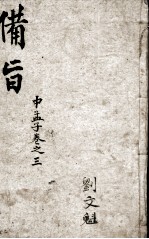 備旨
中孟子卷之三
劉文魁